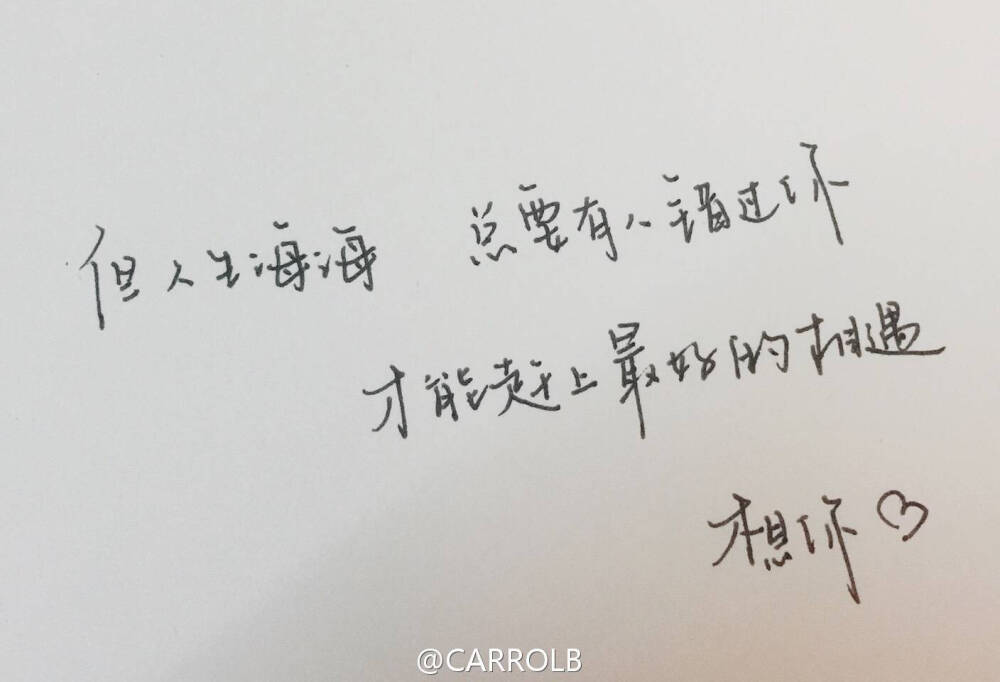 但人生海海 总要有人错过你
才能赶上最好的相遇
想你♡
@CARROLB